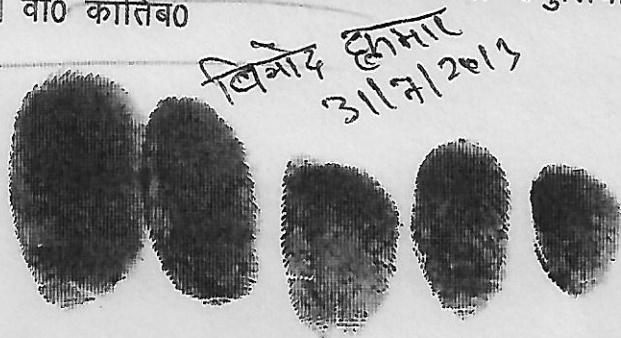 वी0 कातिब0
विनोद कुमार
31/7/2013